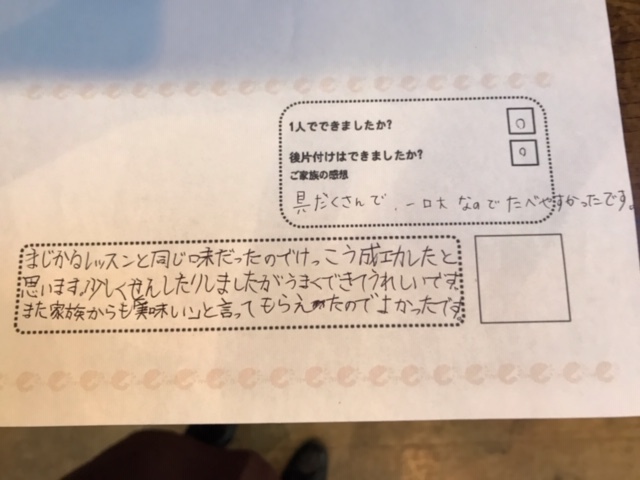 1人でできましたか? ○
後片付けはできましたか? ○
ご家族の感想
具だくさんで、一口大なのでたべやすかったです。
まじかるレッスンと同じ味だったのでけっこう成功したと
思います。少しくせんしたりしましたがうまくできてうれしいです。
また家族からも「美味しい」と言ってもらえたのでよかったです。